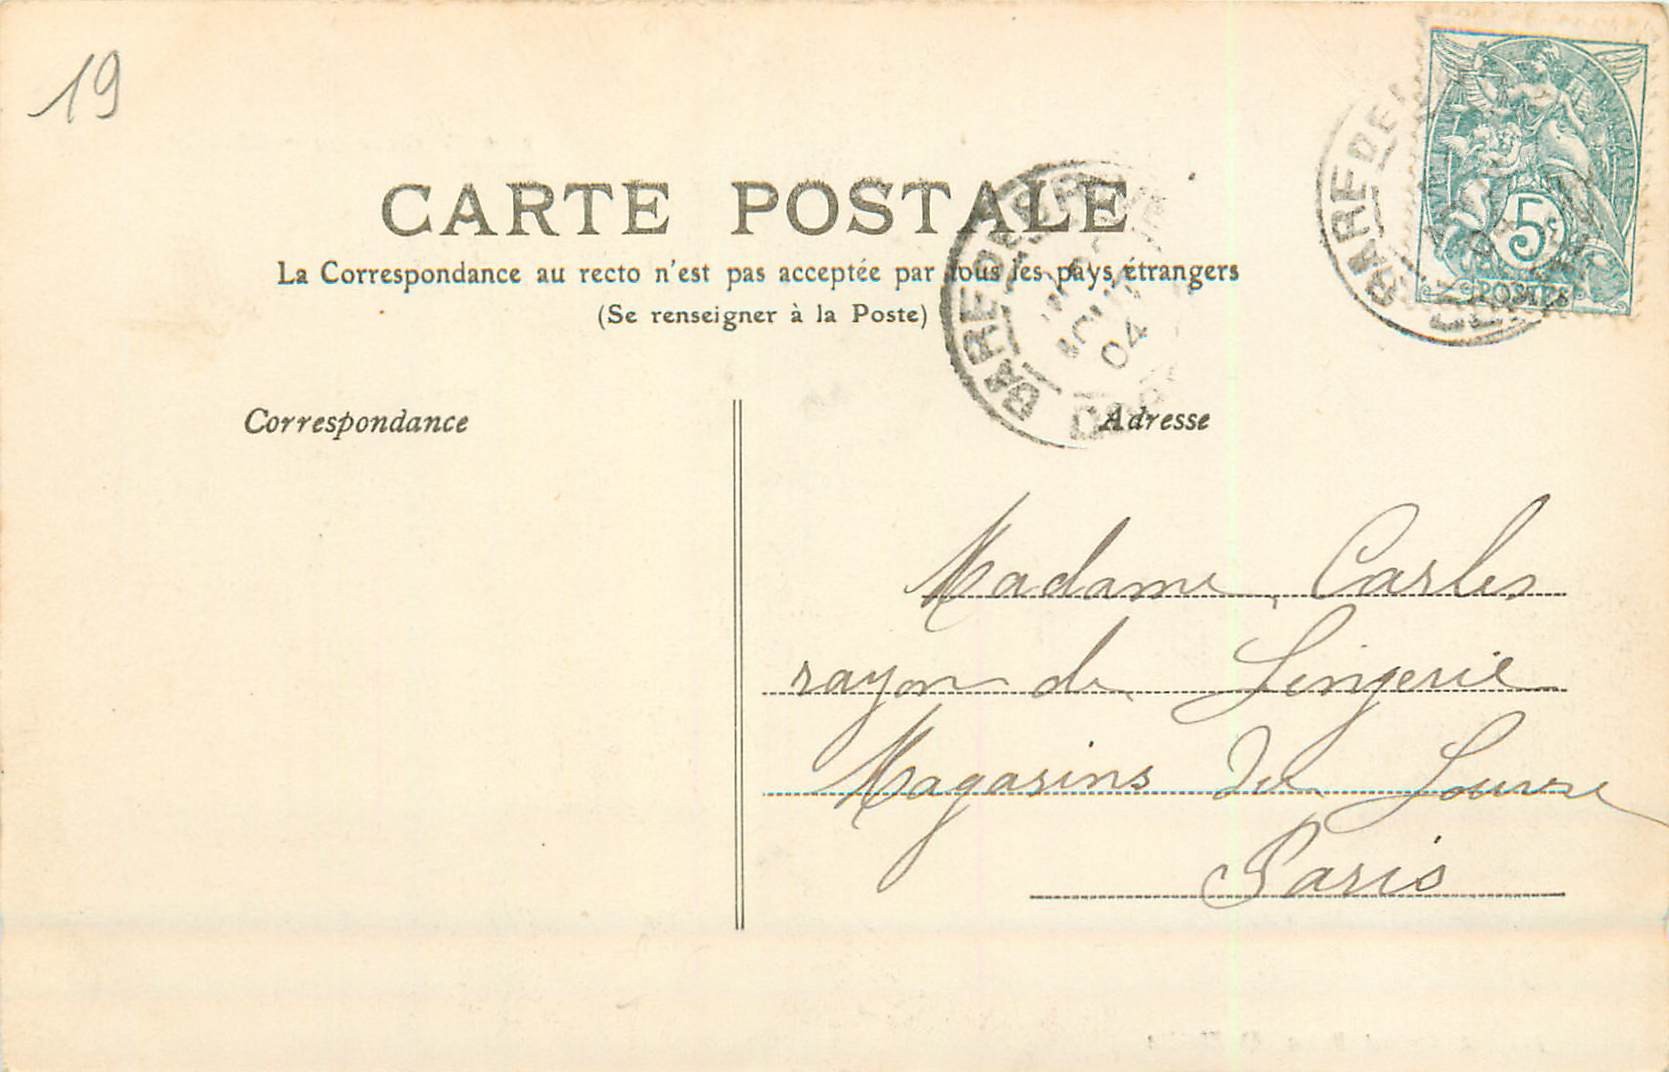 19
CARTE POSTALE
La Correspondance au recto n'est pas acceptée par tous les pays étrangers
(Se renseigner à la Poste)
Correspondance
Adresse
GARE DE
04
GARE DE
5c
POSTES
Madame Carles
rayon de Lingerie
Magasins du Louvre
Paris